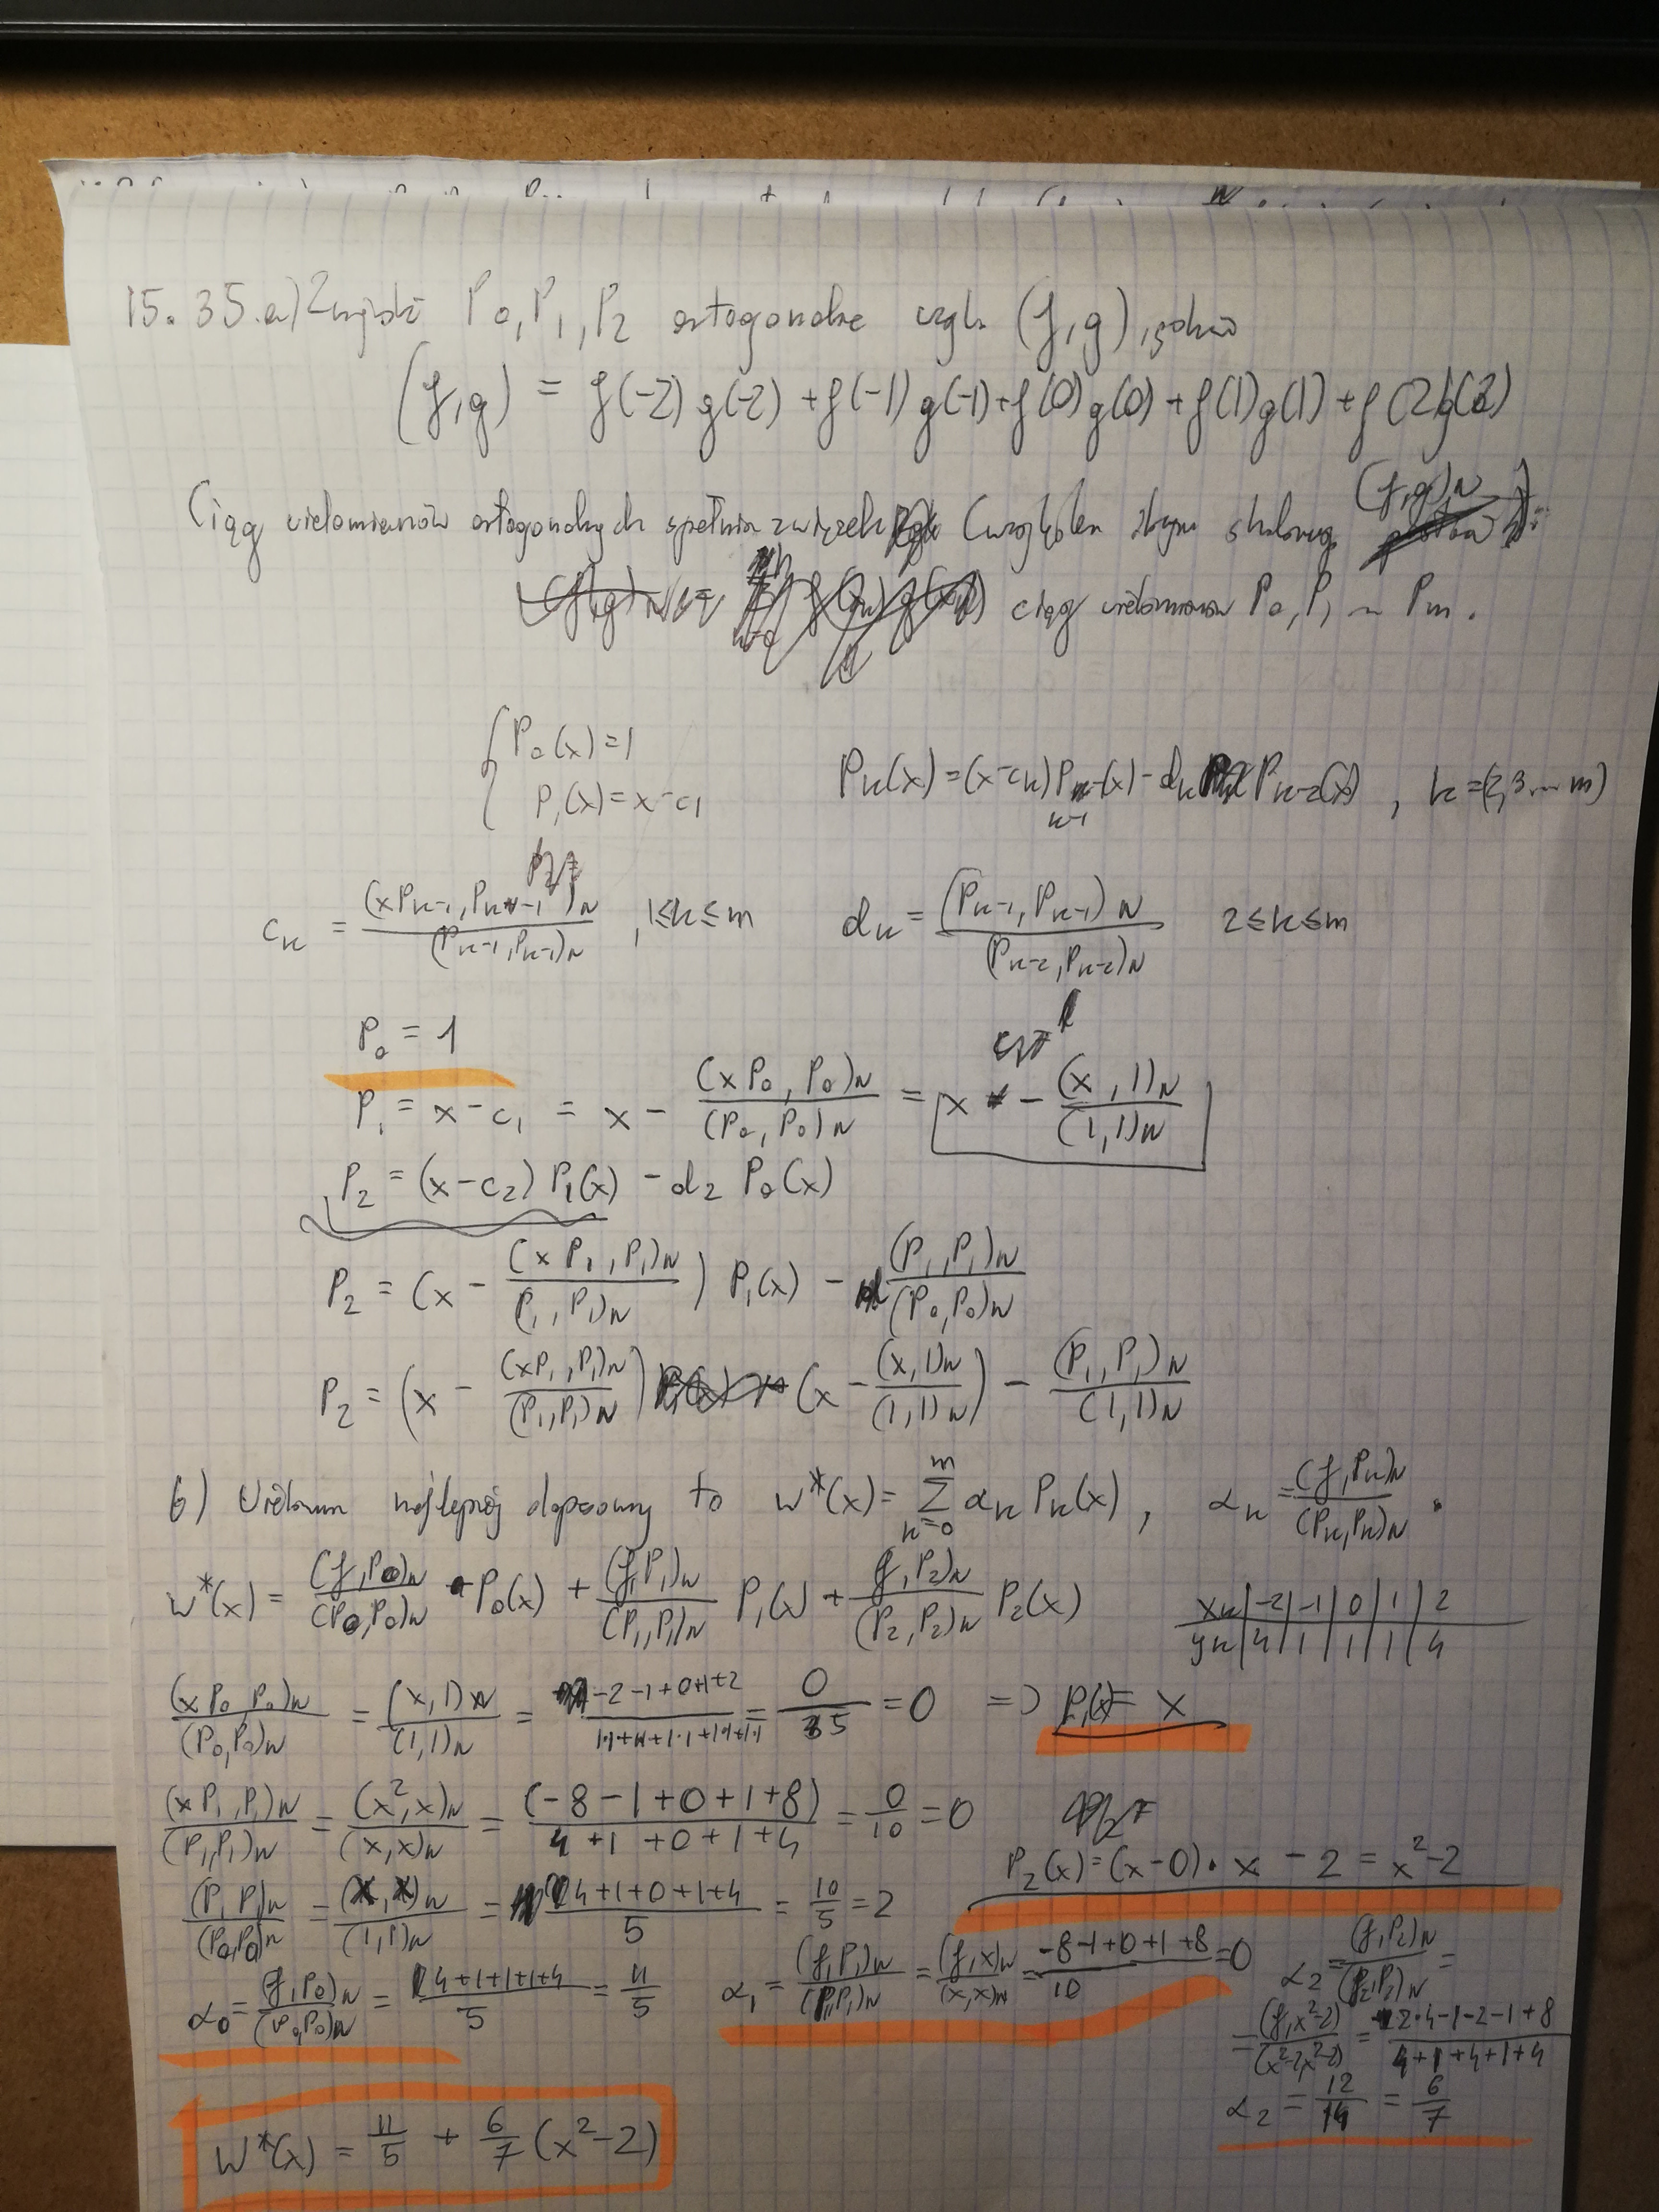 15.35.a) Znajdź P0, P1, P2 ortogonalne wzgl. (f,g), gdzie
(f,g) = f(-2)g(-2) + f(-1)g(-1) + f(0)g(0) + f(1)g(1) + f(2)g(2)
Ciąg wielomianów ortogonalnych spełnia związek (względem skalarnego (f,g)N
ciąg wielomianów P0, P1 ... Pm.
{ P0(x) = 1
P1(x) = x - c1
Pk(x) = (x - ck) Pk-1(x) - dk Pk-2(x), k = (2,3...m)
ck = (xPk-1, Pk-1)N / (Pk-1, Pk-1)N, 1≤k≤m dk = (Pk-1, Pk-1)N / (Pk-2, Pk-2)N 2≤k≤m
P0 = 1
P1 = x - c1 = x - (xP0, P0)N / (P0, P0)N = x - (x, 1)N / (1, 1)N
P2 = (x - c2) P1(x) - d2 P0(x)
P2 = (x - (xP1, P1)N / (P1, P1)N) P1(x) - (P1, P1)N / (P0, P0)N
P2 = (x - (xP1, P1)N / (P1, P1)N) (x - (x, 1)N / (1, 1)N) - (P1, P1)N / (1, 1)N
b) Wielomian najlepiej dopasowany to w*(x) = Σ k=0 m αk Pk(x), αk = (f, Pk)N / (Pk, Pk)N.
w*(x) = (f, P0)N / (P0, P0)N · P0(x) + (f, P1)N / (P1, P1)N P1(x) + (f, P2)N / (P2, P2)N P2(x)
xk | -2 | -1 | 0 | 1 | 2
yk | 4 | 1 | 1 | 1 | 4
(xP0, P0)N / (P0, P0)N = (x, 1)N / (1, 1)N = -2-1+0+1+2 / 1·1+1·1+1·1+1·1+1·1 = 0/5 = 0 => P1(x) = x
(xP1, P1)N / (P1, P1)N = (x², x)N / (x, x)N = (-8-1+0+1+8) / 4+1+0+1+4 = 0/10 = 0
P2(x) = (x-0)·x - 2 = x²-2
(P1, P1)N / (P0, P0)N = (x, x)N / (1, 1)N = 4+1+0+1+4 / 5 = 10/5 = 2
α0 = (f, P0)N / (P0, P0)N = 4+1+1+1+4 / 5 = 11/5
α1 = (f, P1)N / (P1, P1)N = (f, x)N / (x, x)N = -8-1+0+1+8 / 10 = 0
α2 = (f, P2)N / (P2, P2)N =
= (f, x²-2) / (x²-2, x²-2) = 2·4-1-2-1+8 / 4+1+4+1+4
α2 = 12/14 = 6/7
W*(x) = 11/5 + 6/7 (x²-2)